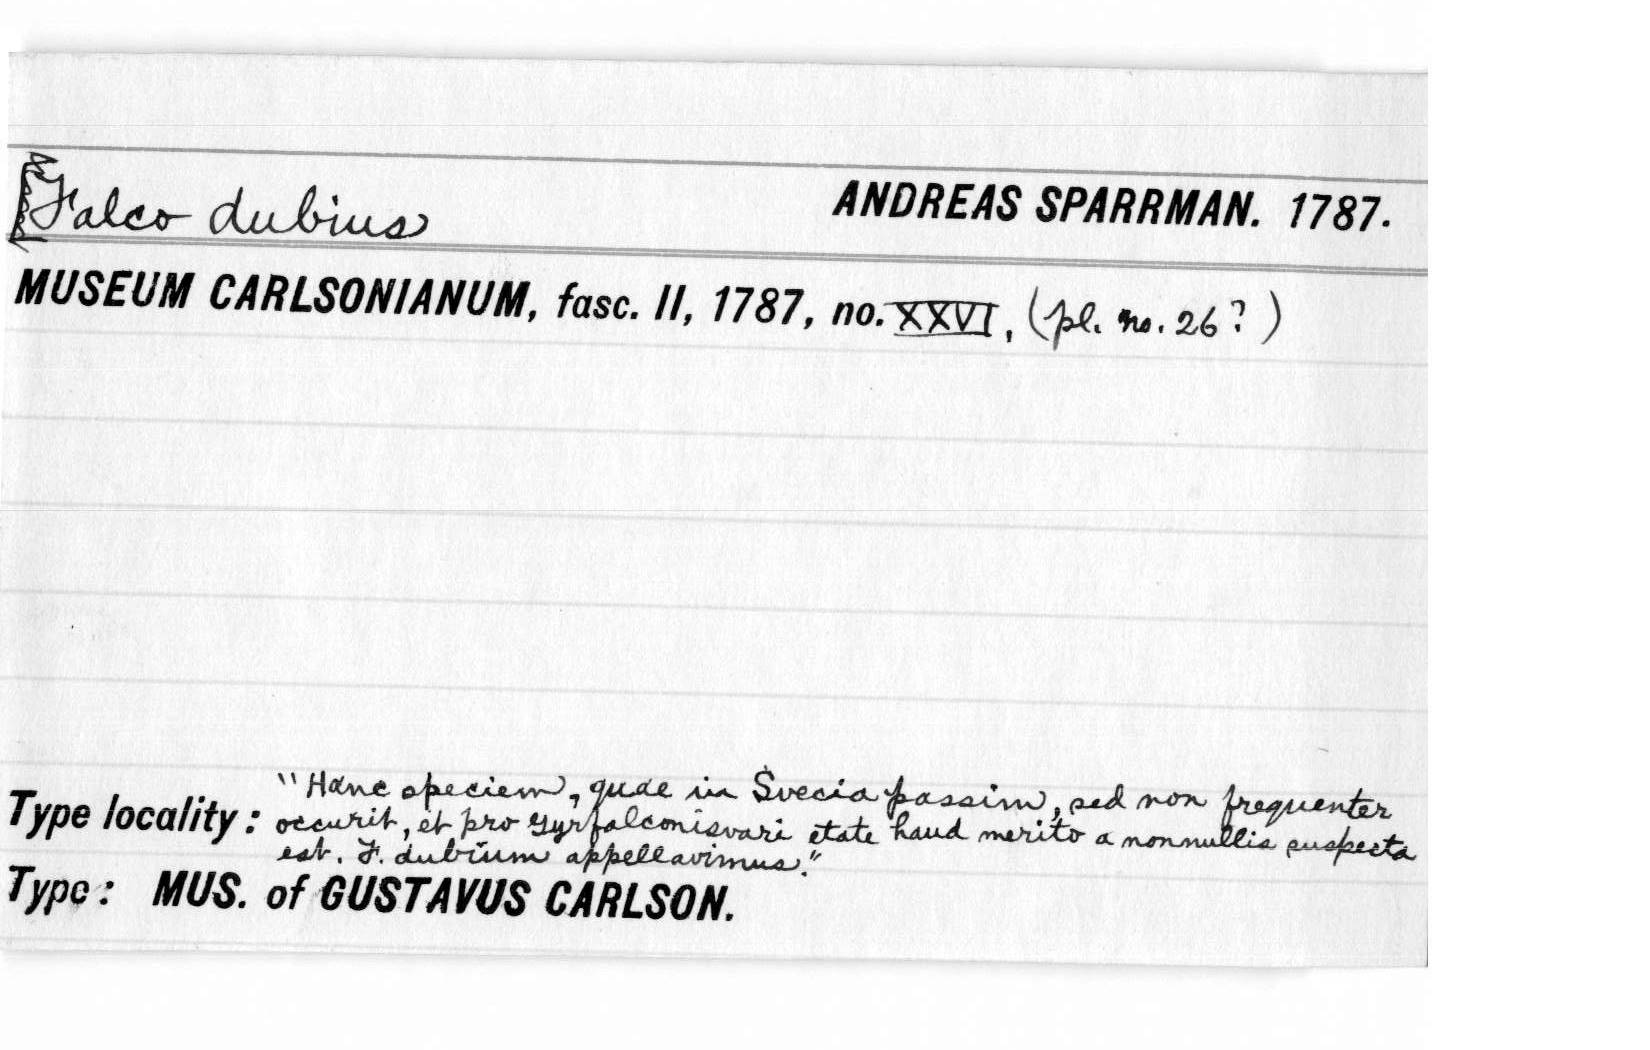 Falco dubius ANDREAS SPARRMAN. 1787.
MUSEUM CARLSONIANUM, fasc. II, 1787, no. XXVI, (pl. no. 26?)
"Hanc speciem, quae in Svecia passim, sed non frequenter
Type locality: occurit, et pro Gyrfalconisvari etate haud merito a nonnullis suspecta
est. F. dubium appellavimus."
Type: MUS. of GUSTAVUS CARLSON.